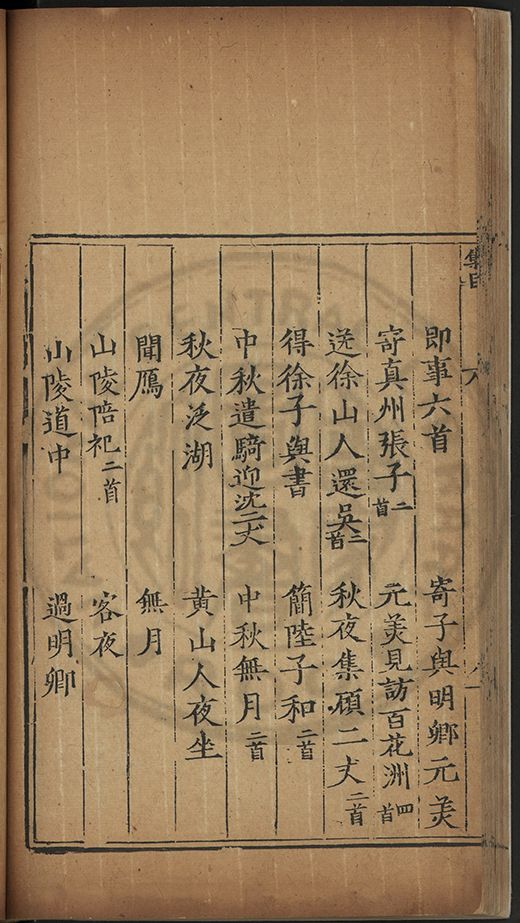 即事六首 寄子與明卿元美
寄真州張子二首 元美見訪百花洲四首
送徐山人還吳二首 秋夜集顧二丈二首
得徐子與書 簡陸子和二首
中秋遣騎迎沈二丈 中秋無月二首
秋夜泛湖 黃山人夜坐
聞鴈 無月
山陵陪祀二首 客夜
山陵道中 過明卿